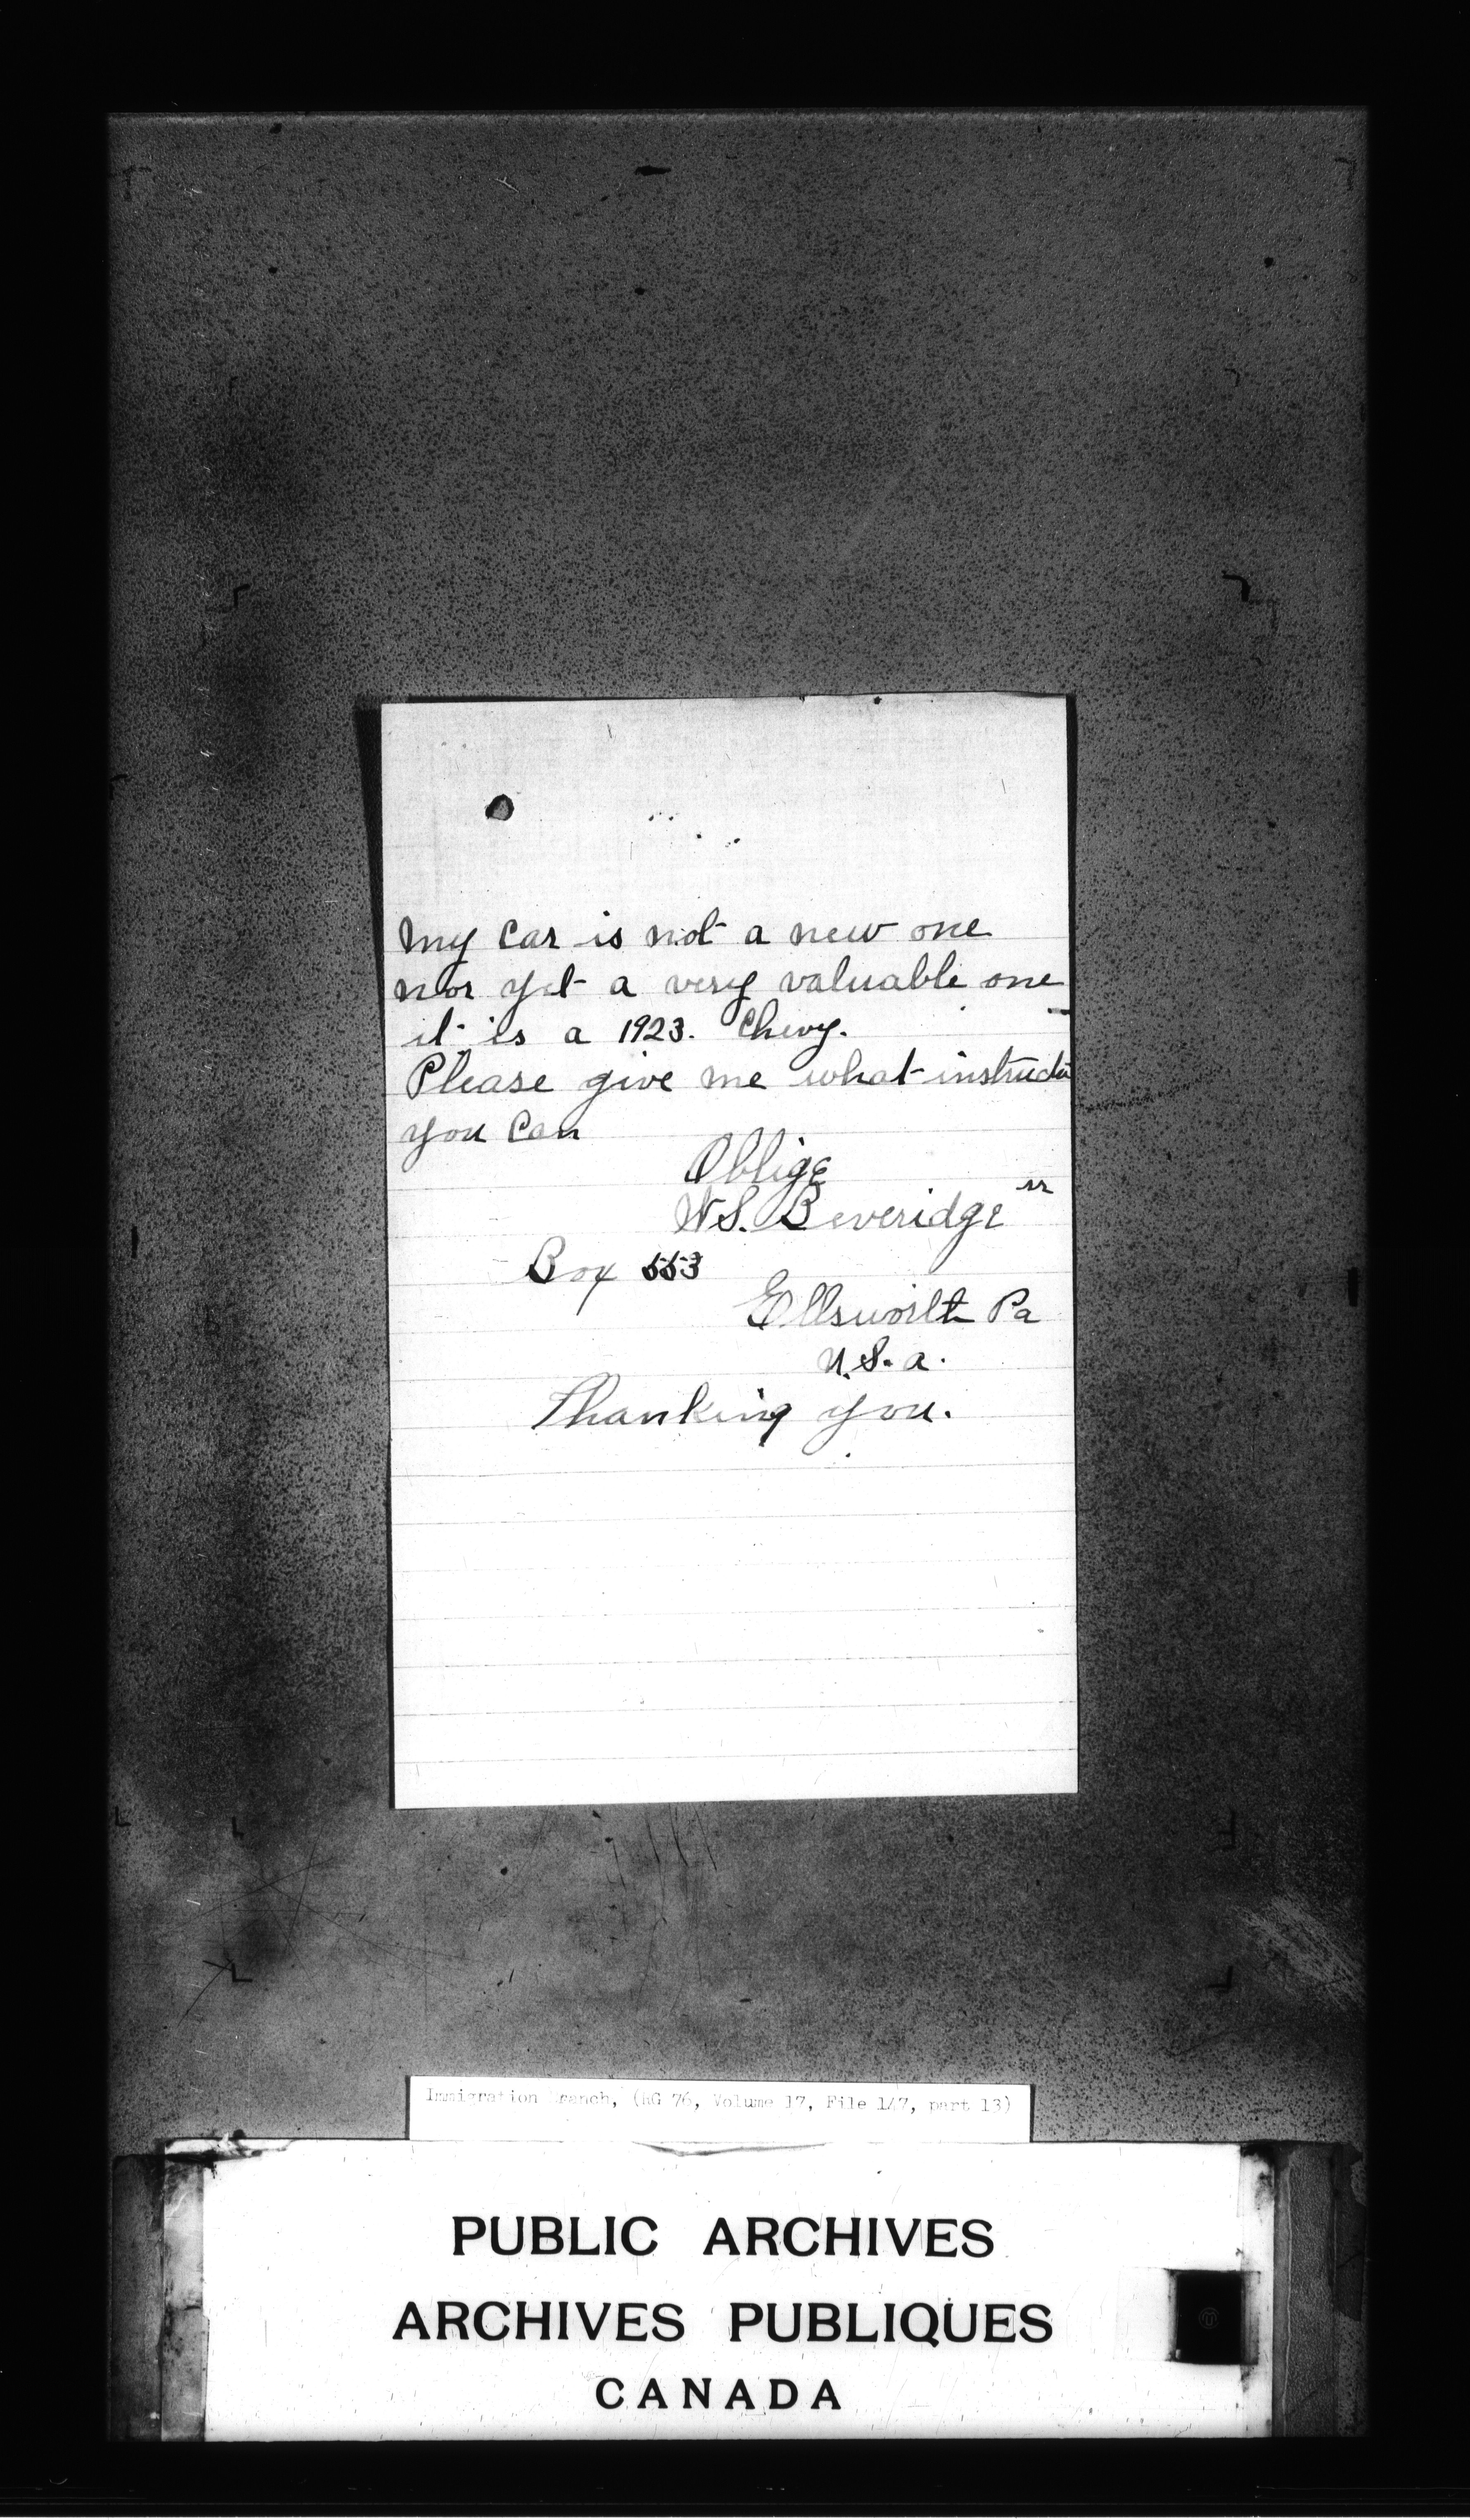 My Car is not a new one
nor yet a very valuable one
it is a 1923. Chevy.
Please give me what instructi
you Can
Oblige
W.S. Beveridge sr
Box 553
Ellsworth Pa
U.S.a.
Thanking you.
Immigration Branch, (RG 76, Volume 17, File 147, part 13)
PUBLIC ARCHIVES
ARCHIVES PUBLIQUES
CANADA